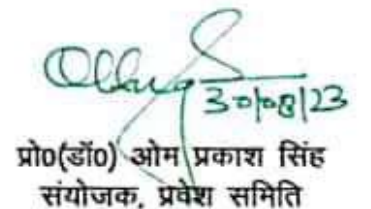 30/08/23
प्रो0(डॉ0) ओम प्रकाश सिंह
संयोजक, प्रवेश समिति